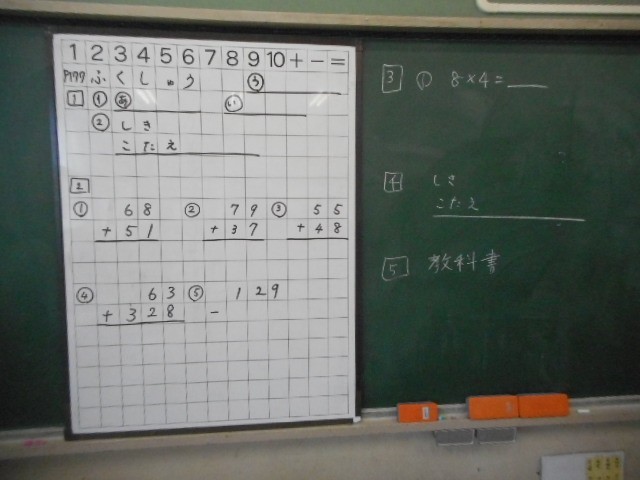 1 2 3 4 5 6 7 8 9 10 + - =
P177 ふくしゅう ③
1 ① あ い
② しき
こたえ
2
① 68 ② 79 ③ 55
+ 51 + 37 + 48
④ 63 ⑤ 129
+ 328 -
3 ① 8×4=
4 しき
こたえ
5 教科書